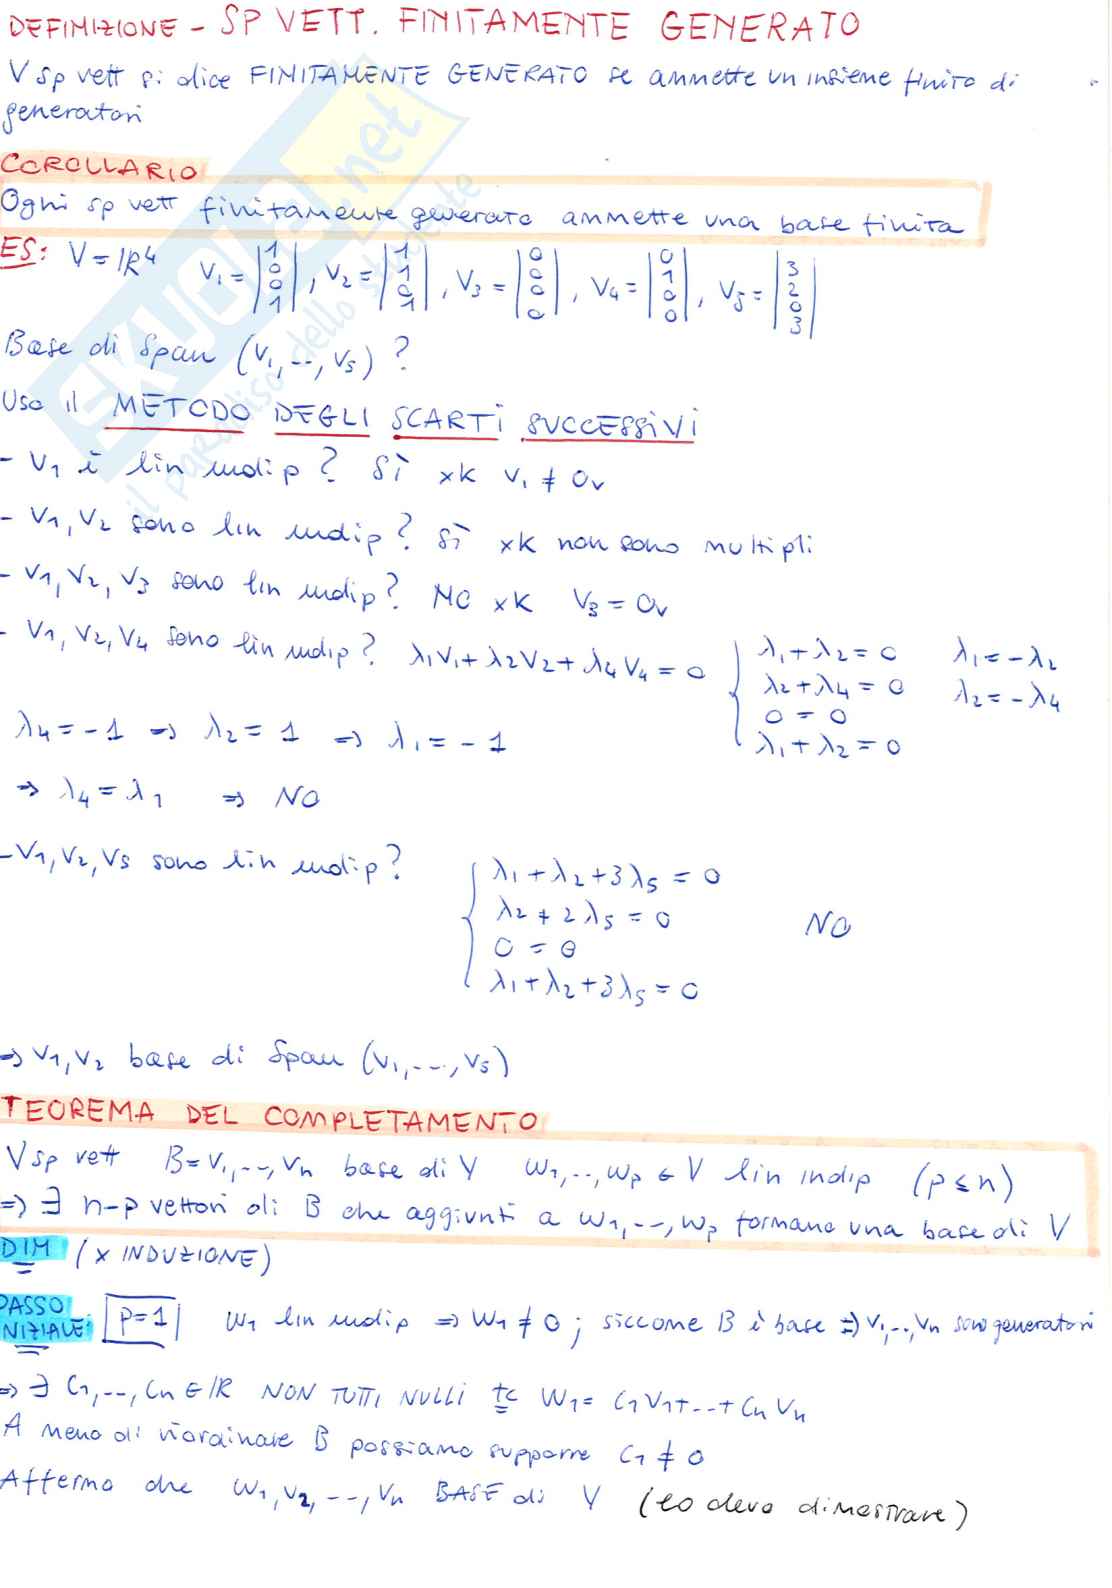 DEFINIZIONE - SP VETT. FINITAMENTE GENERATO
V sp vett si dice FINITAMENTE GENERATO se ammette un insieme finito di
generatori
COROLLARIO
Ogni sp vett finitamente generato ammette una base finita
ES: V = ℝ⁴ V₁ = |1 0 0 1|, V₂ = |1 1 0 1|, V₃ = |0 0 0 0|, V₄ = |0 1 0 0|, V₅ = |3 2 0 3|
Base di Span (V₁, --, V₅) ?
Uso il METODO DEGLI SCARTI SUCCESSIVI
- V₁ è lin indip? Sì xk V₁ ≠ 0v
- V₁, V₂ sono lin indip? Sì xk non sono multipli
- V₁, V₂, V₃ sono lin indip? NO xk V₃ = 0v
- V₁, V₂, V₄ sono lin indip? λ₁V₁ + λ₂V₂ + λ₄V₄ = 0
λ₁ + λ₂ = 0 λ₁ = -λ₂
λ₂ + λ₄ = 0 λ₂ = -λ₄
0 = 0
λ₁ + λ₂ = 0
λ₄ = -1 => λ₂ = 1 => λ₁ = -1
=> λ₄ = λ₁ => NO
- V₁, V₂, V₅ sono lin indip?
λ₁ + λ₂ + 3λ₅ = 0
λ₂ + 2λ₅ = 0 NO
0 = 0
λ₁ + λ₂ + 3λ₅ = 0
=> V₁, V₂ base di Span (V₁, --, V₅)
TEOREMA DEL COMPLETAMENTO
V sp vett B = V₁, --, Vn base di V W₁, --, Wp ∈ V lin indip (p ≤ n)
=> ∃ n-p vettori di B che aggiunti a W₁, --, Wp formano una base di V
DIM (x INDUZIONE)
PASSO
NIZIALE: P=1 W₁ lin indip => W₁ ≠ 0; siccome B è base => V₁, --, Vn sono generatori
=> ∃ C₁, --, Cn ∈ ℝ NON TUTTI NULLI tc W₁ = C₁V₁ + -- + CnVn
A meno di riordinare B possiamo supporre C₁ ≠ 0
Affermo che W₁, V₂, --, Vn BASE di V (lo devo dimostrare)
SKUOLA.net
il paradiso dello studente